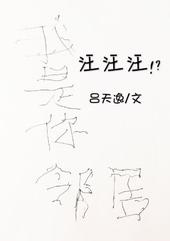 汪汪汪!?
吕天逸/文
我是你
邻居